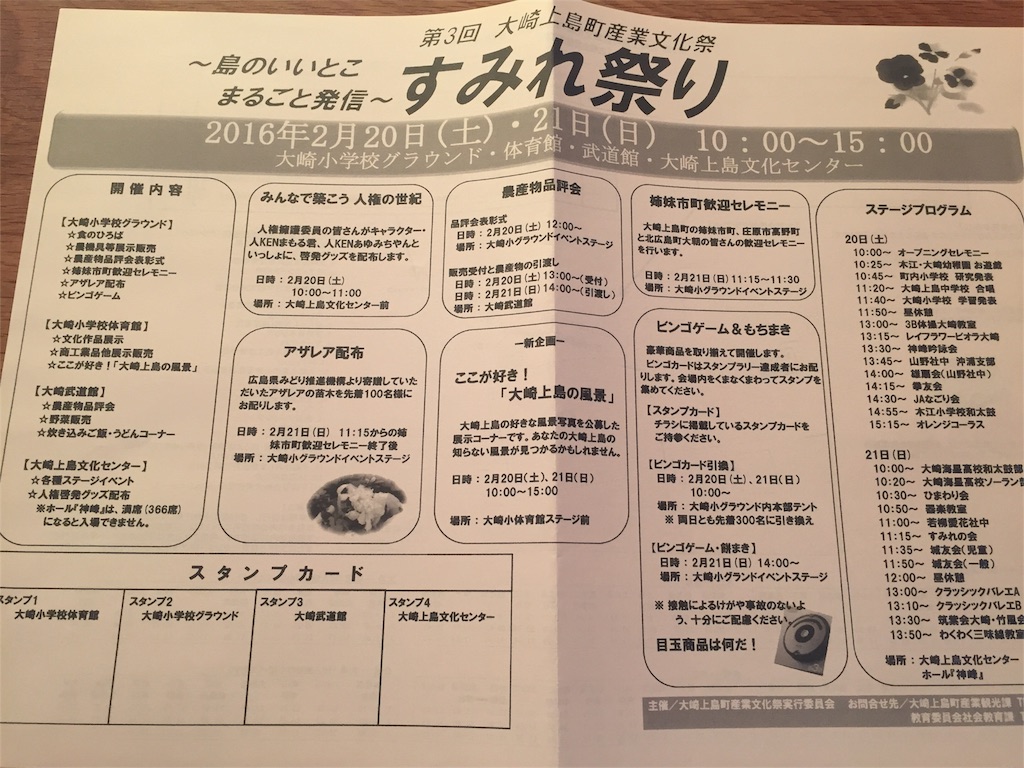 第3回 大崎上島町産業文化祭
～島のいいとこ
まるごと発信～
すみれ祭り
2016年2月20日(土)・21日(日) 10：00～15：00
大崎小学校グラウンド・体育館・武道館・大崎上島文化センター
開催内容
【大崎小学校グラウンド】
☆食のひろば
☆農機具等展示販売
☆農産物品評会表彰式
☆姉妹市町歓迎セレモニー
☆アザレア配布
☆ビンゴゲーム
【大崎小学校体育館】
☆文化作品展示
☆商工業品他展示販売
☆ここが好き！「大崎上島の風景」
【大崎武道館】
☆農産物品評会
☆野菜販売
☆炊き込みご飯・うどんコーナー
【大崎上島文化センター】
☆各種ステージイベント
☆人権啓発グッズ配布
※ホール『神峰』は、満席（366席）
になると入場できません。
みんなで築こう 人権の世紀
人権擁護委員の皆さんがキャラクター・
人KENまもる君、人KENあゆみちゃんと
いっしょに、啓発グッズを配布します。
日時：2月20日(土)
10:00～11:00
場所：大崎上島文化センター前
アザレア配布
広島県みどり推進機構より寄贈していた
だいたアザレアの苗木を先着100名様に
お配りします。
日時：2月21日(日) 11:15からの姉
妹市町歓迎セレモニー終了後
場所：大崎小グラウンドイベントステージ
農産物品評会
品評会表彰式
日時：2月20日(土) 12:00～
場所：大崎小グラウンドイベントステージ
販売受付と農産物の引渡し
日時：2月20日(土) 13:00～(受付)
2月21日(日) 14:00～(引渡し)
場所：大崎武道館
－新企画－
ここが好き！
「大崎上島の風景」
大崎上島の好きな風景写真を公募した
展示コーナーです。あなたの大崎上島の
知らない風景が見つかるかもしれません。
日時：2月20日(土)、21日(日)
10:00～15:00
場所：大崎小体育館ステージ前
姉妹市町歓迎セレモニー
大崎上島町の姉妹市町、庄原市高野町
と北広島町大朝の皆さんの歓迎セレモニー
を行います。
日時：2月21日(日)11:15～11:30
場所：大崎小グラウンドイベントステージ
ビンゴゲーム＆もちまき
豪華商品を取り揃えて開催します。
ビンゴカードはスタンプラリー達成者にお配
りします。会場内をくまなくまわってスタンプを
集めてください。
【スタンプカード】
チラシに掲載しているスタンプカードを
ご持参ください。
【ビンゴカード引換】
日時：2月20日(土)、21日(日)
10:00～
場所：大崎小グラウンド内本部テント
※ 両日とも先着300名に引き換え
【ビンゴゲーム・餅まき】
日時：2月21日(日) 14:00～
場所：大崎小グランドイベントステージ
※ 接触によるけがや事故のないよ
う、十分にご配慮ください。
目玉商品は何だ！
ステージプログラム
20日(土)
10:00～ オープニングセレモニー
10:25～ 木江・大崎幼稚園 お遊戯
10:45～ 町内小学校 研究発表
11:20～ 大崎上島中学校 合唱
11:40～ 大崎小学校 学習発表
11:50～ 昼休憩
13:00～ 3B体操大崎教室
13:15～ レイフラワービオラ大崎
13:30～ 神峰吟詠会
13:45～ 山野社中 沖浦支部
14:00～ 雄扇会(山野社中)
14:15～ 拳友会
14:30～ JAなごり会
14:55～ 木江小学校和太鼓
15:15～ オレンジコーラス
21日(日)
10:00～ 大崎海星高校和太鼓部
10:20～ 大崎海星高校ソーラン部
10:30～ ひまわり会
10:50～ 器楽教室
11:00～ 若柳愛花社中
11:15～ すみれの会
11:35～ 城友会(児童)
11:50～ 城友会(一般)
12:00～ 昼休憩
13:00～ クラッシックバレエA
13:10～ クラッシックバレエB
13:30～ 筑紫会大崎・竹風会
13:50～ わくわく三味線教室
場所：大崎上島文化センター
ホール『神峰』
スタンプカード
スタンプ1
大崎小学校体育館
スタンプ2
大崎小学校グラウンド
スタンプ3
大崎武道館
スタンプ4
大崎上島文化センター
主催／大崎上島町産業文化祭実行委員会 お問合せ先／大崎上島町産業観光課
教育委員会社会教育課